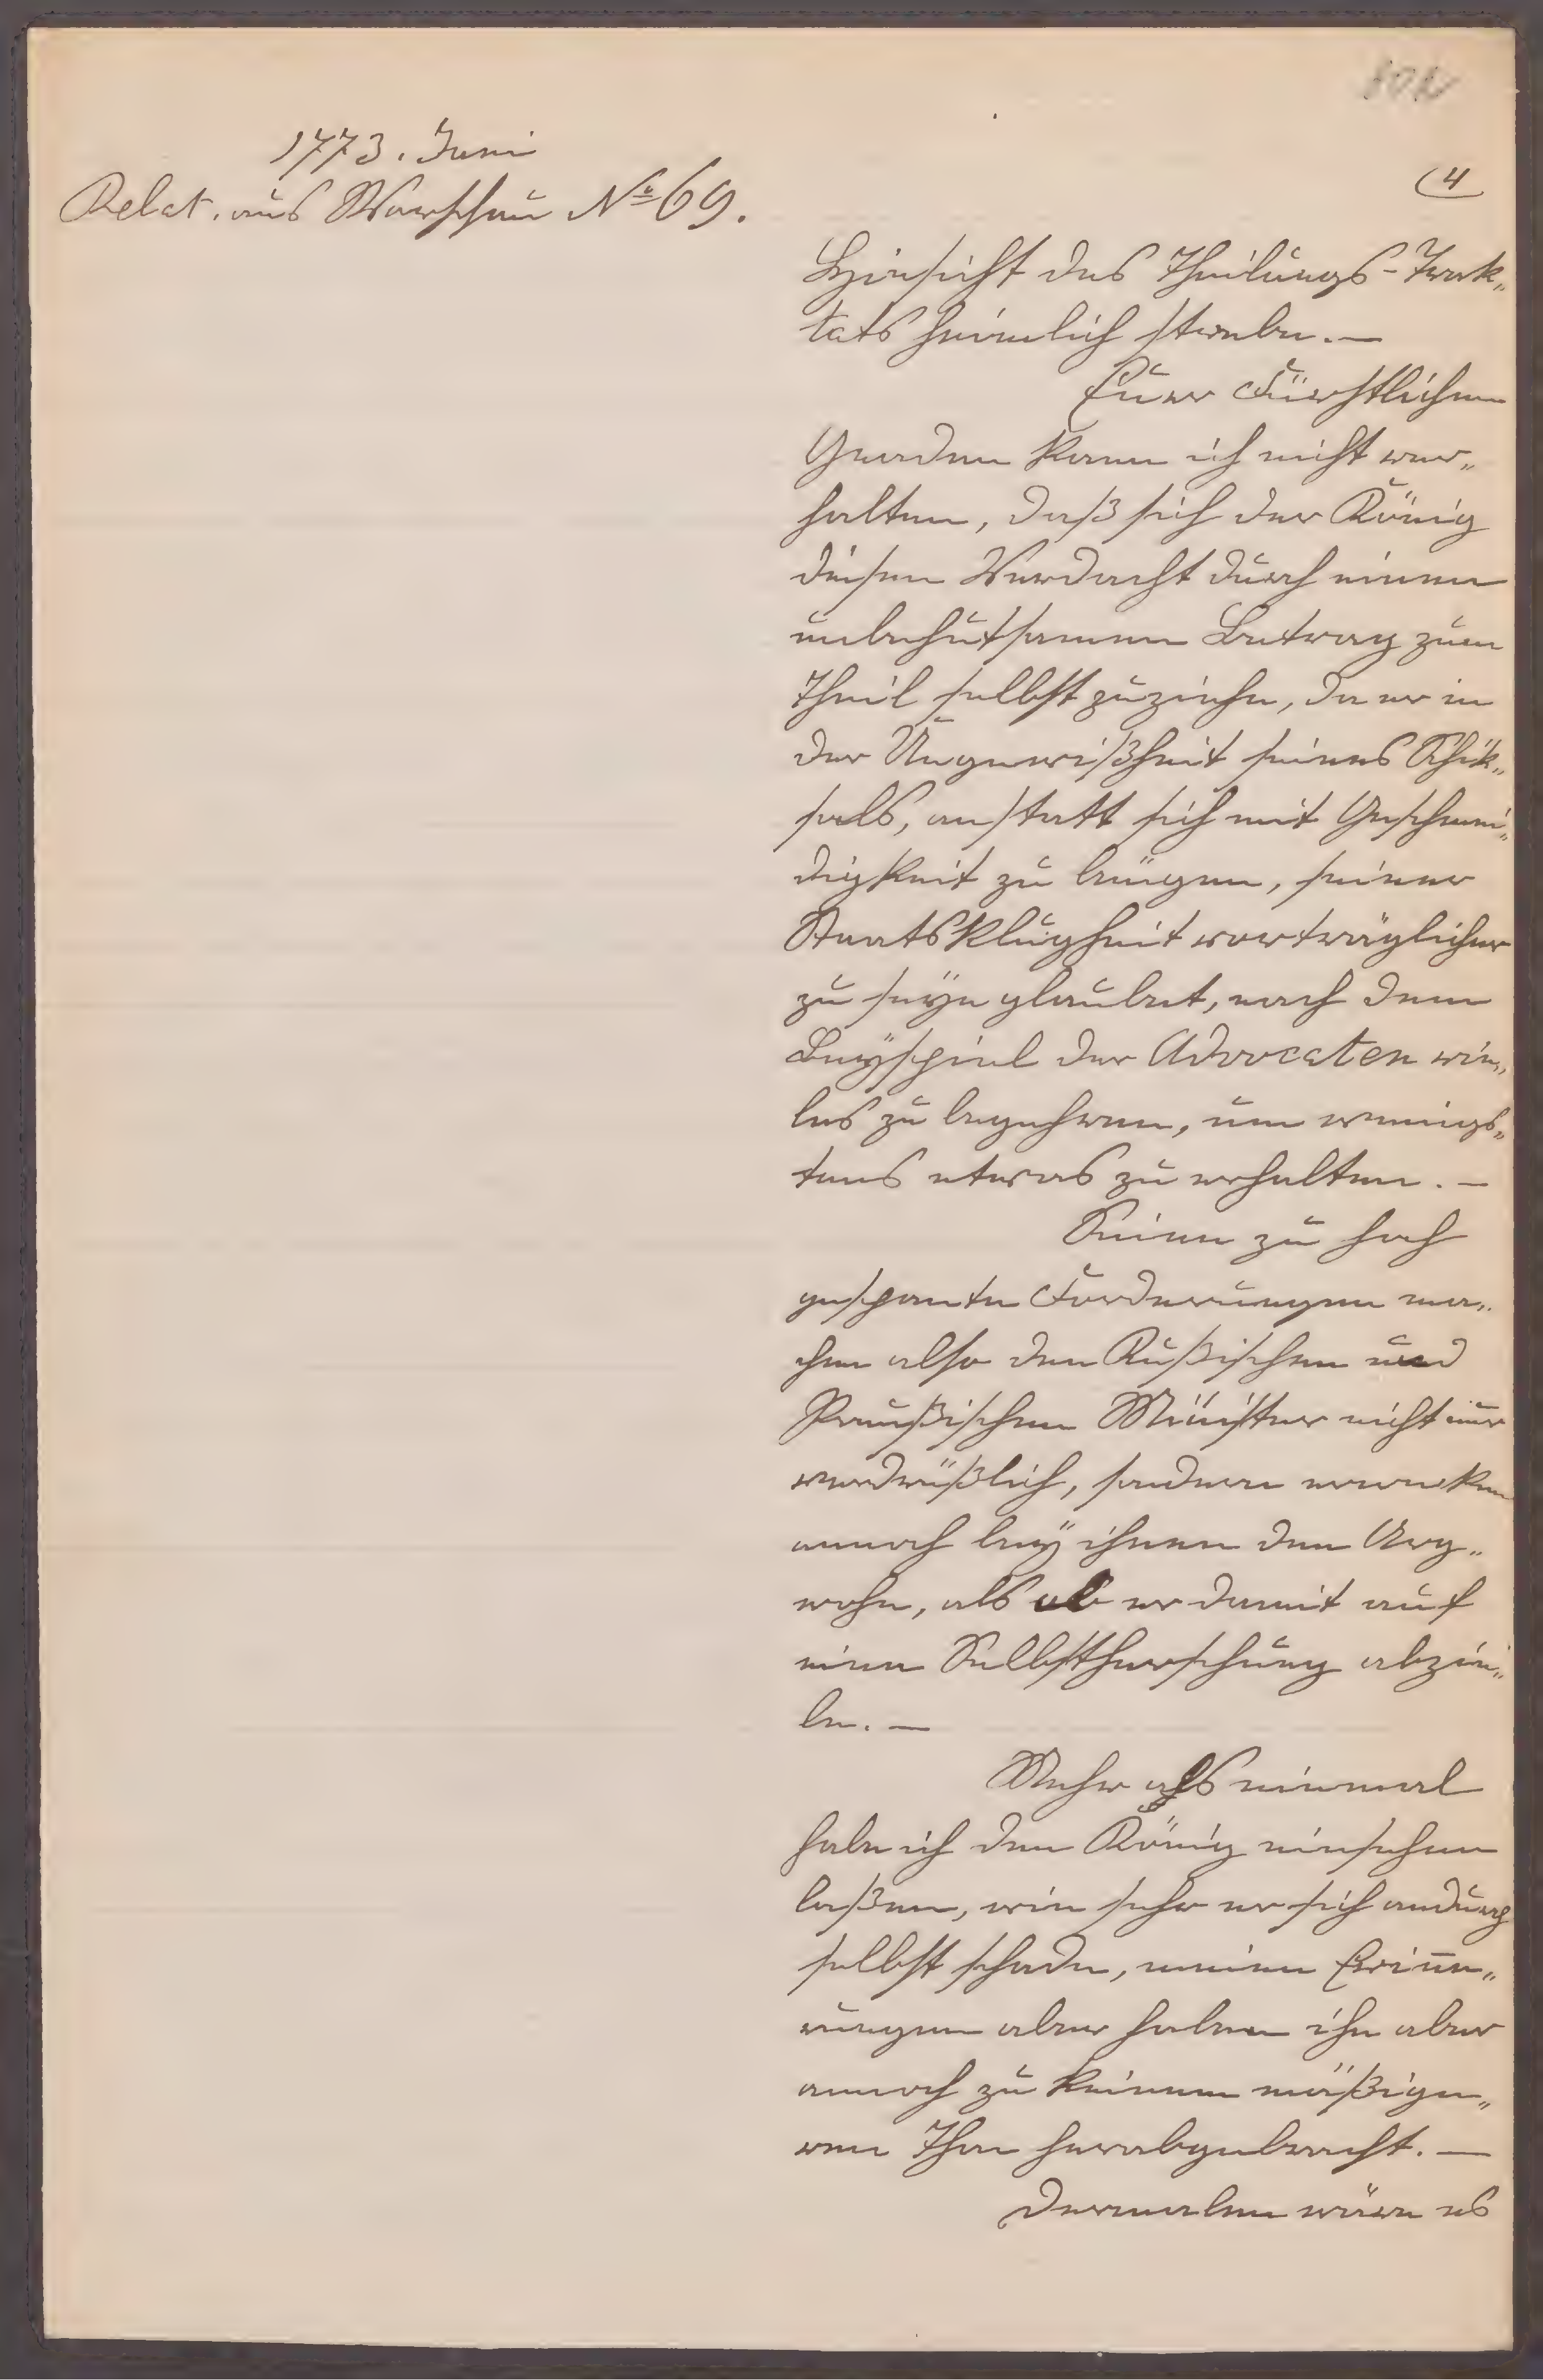 1773. Juni
Relat. aus Warschau No 69.
(4
Hinsicht des Theilungs-Trak„
tats heimlich strebe. —
Euer Fürstlichen
Gnaden kann ich nicht ver„
halten, daß sich der König
diesen Verdacht durch einen
unbehutsamen Betrag zum
Theil selbst zuziehe, da er in
der Ungewißheit seines Schik„
sals, anstatt sich mit Geschmei„
digkeit zu beugen, seiner
Staatsklugheit vorträglicher
zu seÿn glaubet, nach dem
Beÿspiel der Advocaten vie„
les zu begehren, um wenigs„
tens etwas zu erhalten. —
Seine zu hoch
gespante Forderungen ma„
chen also den Rußischen und
Preußischen Minister nicht nur
verdrüßlich, sondern erwecken
annoch beÿ ihnen den Arg„
wohn, als ob er damit auf
eine Selbstherschung abzie„
le. —
Mehr als einmal
habe ich den König einsehen
laßen, wie sehr er sich andurch
selbst schade, meine Erinne„
rungen aber haben ihn aber
annoch zu keinem mäßige„
ren Thon herabgebracht. —
Dermalen wäre es